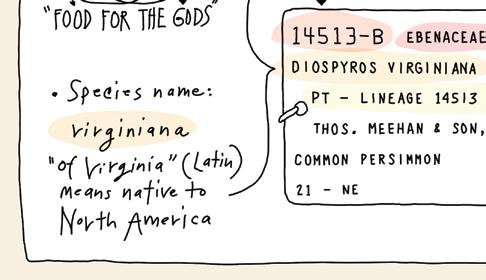 "FOOD FOR THE GODS"
• Species name:
virginiana
"of Virginia" (Latin)
means native to
North America
14513-B EBENACEAE
DIOSPYROS VIRGINIANA
PT - LINEAGE 14513
THOS. MEEHAN & SON,
COMMON PERSIMMON
21 - NE